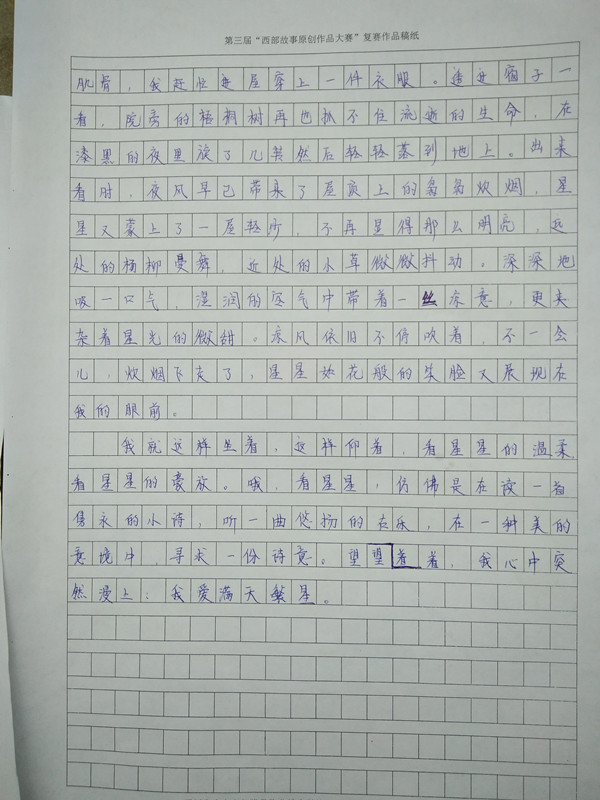 第三届“西部故事原创作品大赛”复赛作品稿纸
肌骨，我赶忙进屋穿上一件衣服。透过窗子一
看，院旁的梧桐树再也抓不住流逝的生命，在
漆黑的夜里旋了几转然后轻轻落到地上。出来
看时，夜风早已带来了屋顶上的袅袅炊烟，星
星又蒙上了一层轻纱，不再显得那么明亮，远
处的杨柳曼舞，近处的小草微微抖动。深深地
吸一口气，湿润的空气中带着一丝凉意，更夹
杂着星光的微甜。凉风依旧不停吹着，不一会
儿，炊烟飞走了，星星如花般的笑脸又展现在
我的眼前。
我就这样坐着，这样仰着，看星星的温柔，
看星星的豪放。哦，看星星，仿佛是在读一首
隽永的小诗，听一曲悠扬的古乐，在一种美的
意境中，寻求一份诗意。望望着着，我心中突
然漫上：我爱满天繁星。